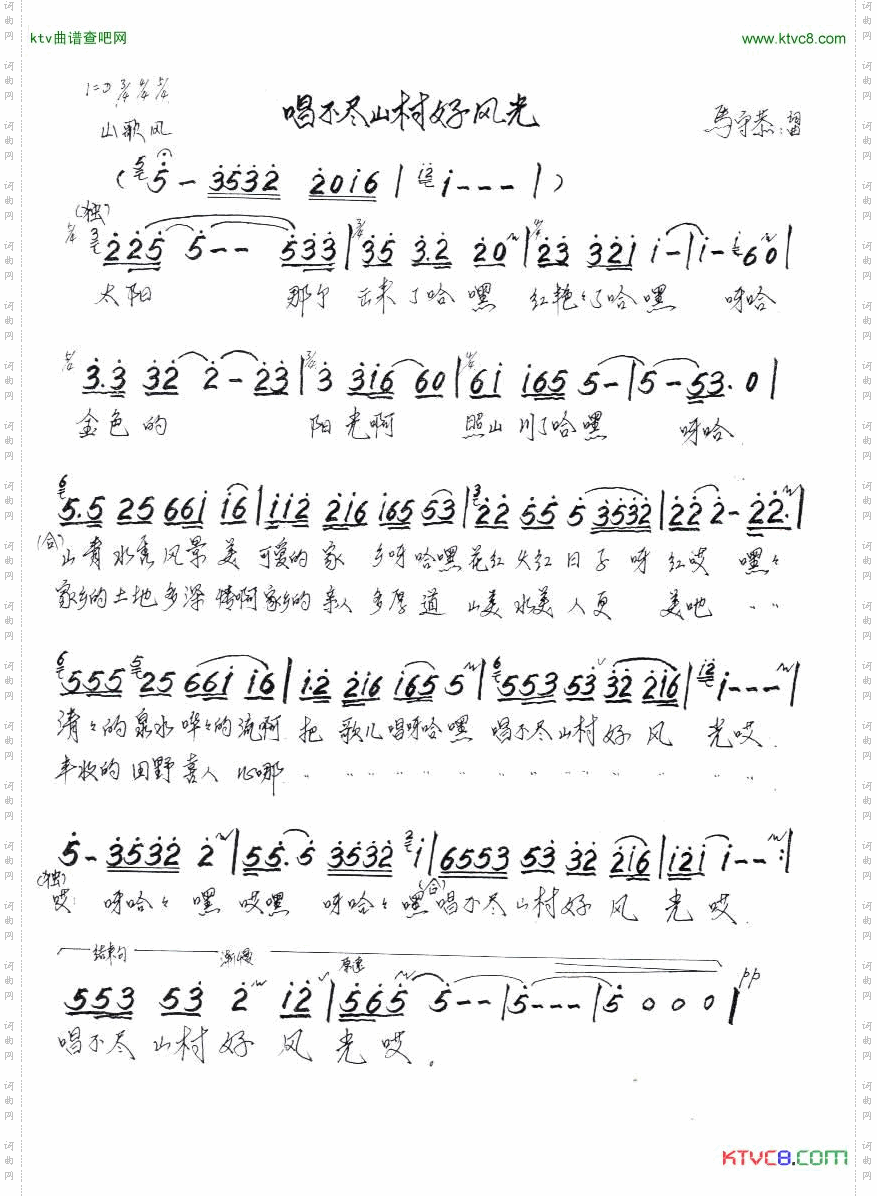 ktv曲谱查吧网 www.ktvc8.com
唱不尽山村好风光
1=D 3/4 4/4 5/4
山歌风
马守恭
(5 - 3532 2016 | i - - - |)
(独)
2 25 5 - - 533 | 35 3.2 20 | 23 321 i - | i - 60 |
太阳 那个 出来了哈嘿 红艳々了哈嘿 呀哈
3.3 32 2 - 23 | 3 316 60 | 61 165 5 - | 5 - 53. 0 |
金色的 阳光啊 照山川了哈嘿 呀哈
5.5 25 661 16 | 112 216 165 53 | 22 55 5 3532 | 22 2 - 22. |
(合) 山青水秀风景美 可爱的家乡呀哈嘿 花红火红日子呀红哎 嘿々
家乡的土地多深情啊家乡的亲人多厚道 山美水美人更美吧 〃 〃
555 25 661 16 | 1.2 216 165 5 | 553 53 32 216 | i - - - |
清々的泉水哗々的流啊 把歌儿唱呀哈嘿 唱不尽山村好风光哎
丰收的田野喜人心哪 〃 〃 〃 〃 〃 〃 〃 〃 〃 〃 〃 〃
5 - 3532 2 | 55. 5 3532 i | 6553 53 32 216 | 121 i - - :|
(独) 哎 呀哈々嘿 哎嘿 呀哈々嘿 (合) 唱不尽山村好风光哎
结束句 渐慢 原速 pp
553 53 2 12 | 565 5 - - | 5 - - - | 5 0 0 0 |
唱不尽山村好风光哎。
KTVC8.COM
词曲网